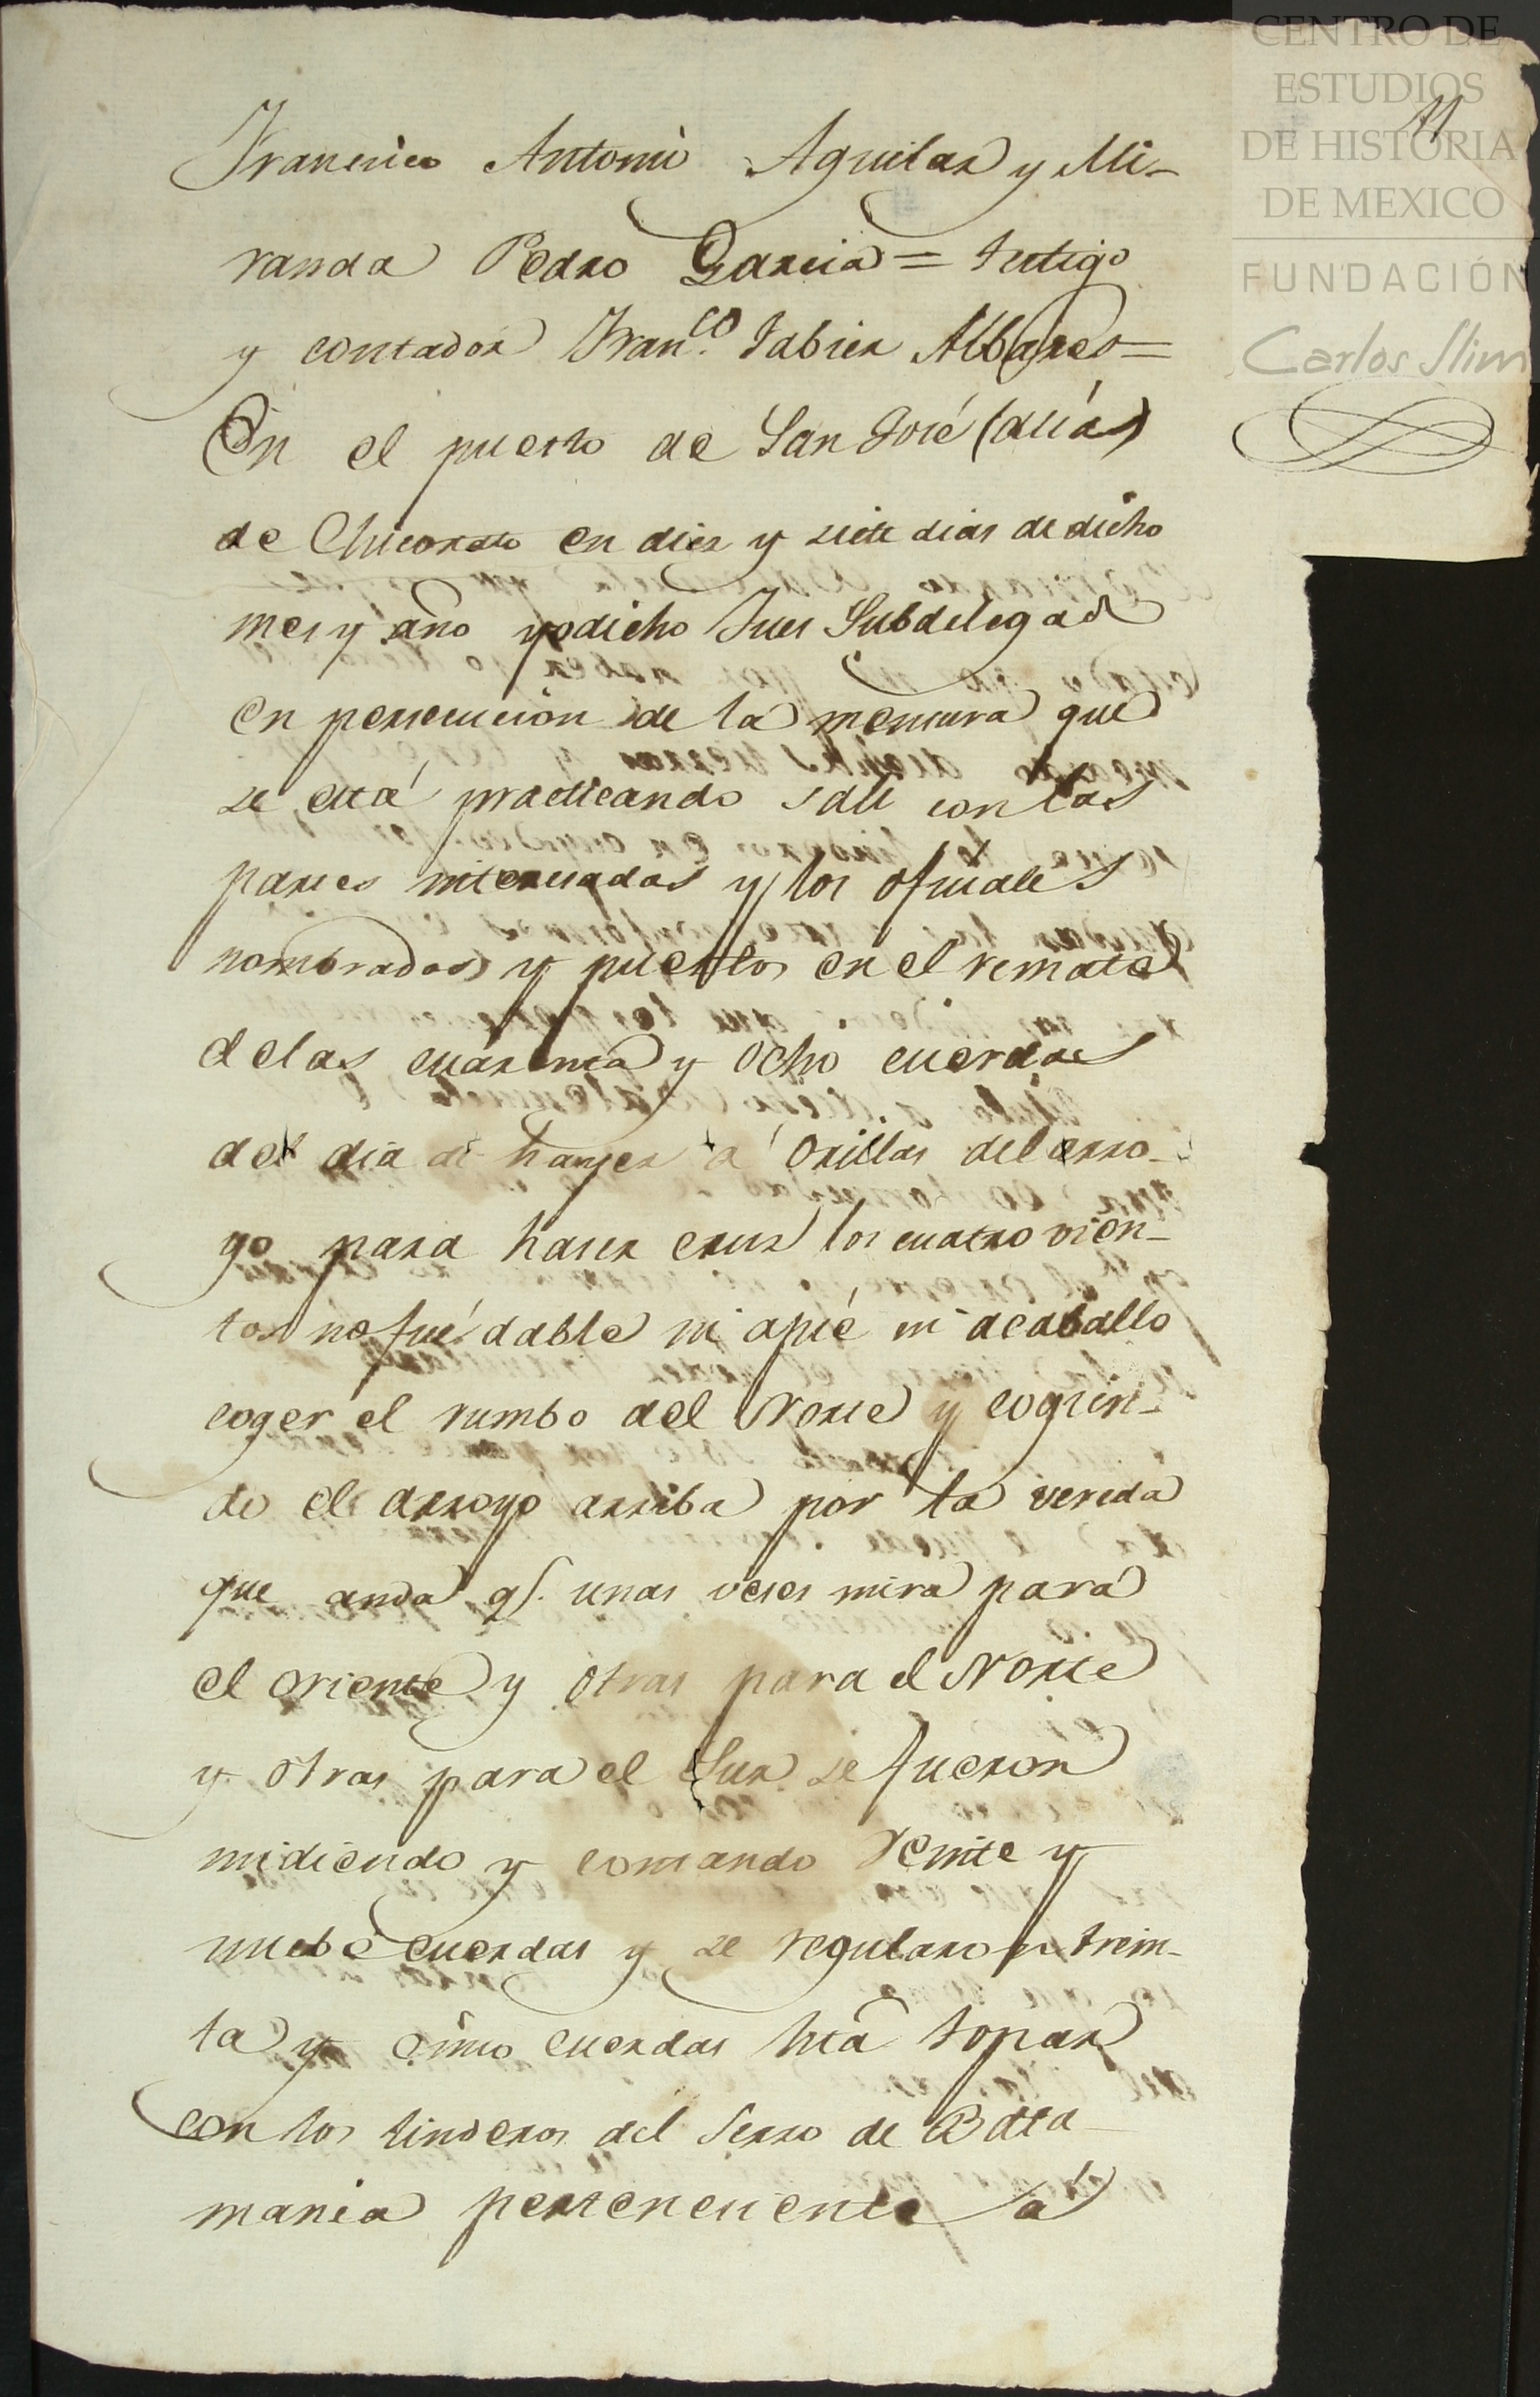 CENTRO DE
ESTUDIOS
DE HISTORIA
DE MEXICO
FUNDACIÓN
Carlos Slim
11
Francisco Antonio Aguilar y Mi-
randa Pedro Garcia = testigo
y contador Fran.co Jabier Albares =
En el puesto de San José (alias)
de Chicorato en dies y siete dias de dicho
mes y año yo dicho Jues Subdelegado
en persecucion de la mensura que
se está practicando sali con las
partes interesadas y los ofisiales
nombrados y puestos en el remate
de las cuarenta y ocho cuerdas
del dia de hayer á orillas del arro-
yo para haser crus los cuatro vien-
tos no fué dable ni apié ni acaballo
coger el rumbo del Norte y cogien-
do el arroyo arriba por la vereda
que anda qe. unas veses mira para
el oriente y otras para el Norte
y otras para el Sur se fueron
midiendo y contando veinte y
nuebe cuerdas y se regularon trein-
ta y cinco cuerdas hta topar
con los linderos del Serro de Bata-
mania pertenenciente á